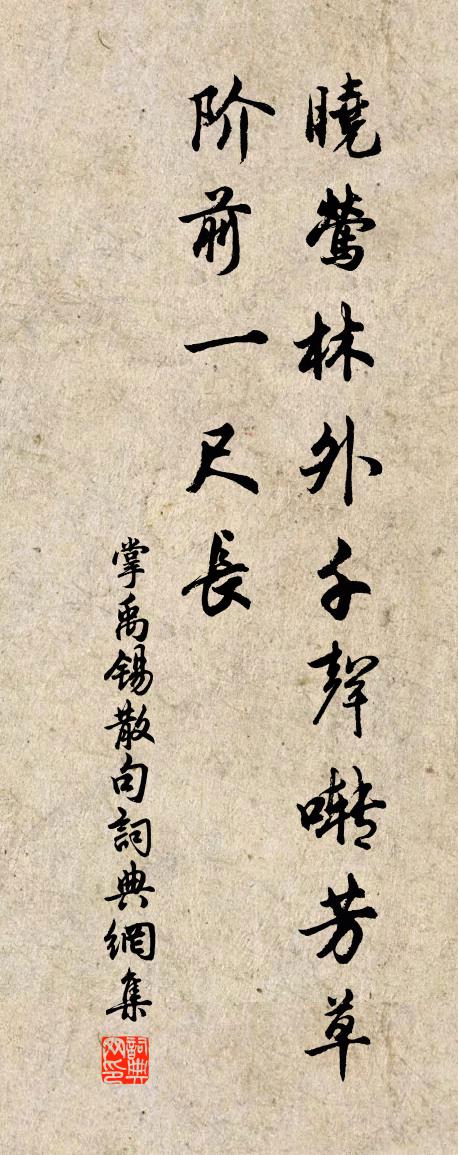 曉鶯林外千聲囀芳草
阶前一尺長
掌禹锡散句詞典網集
詞典網印